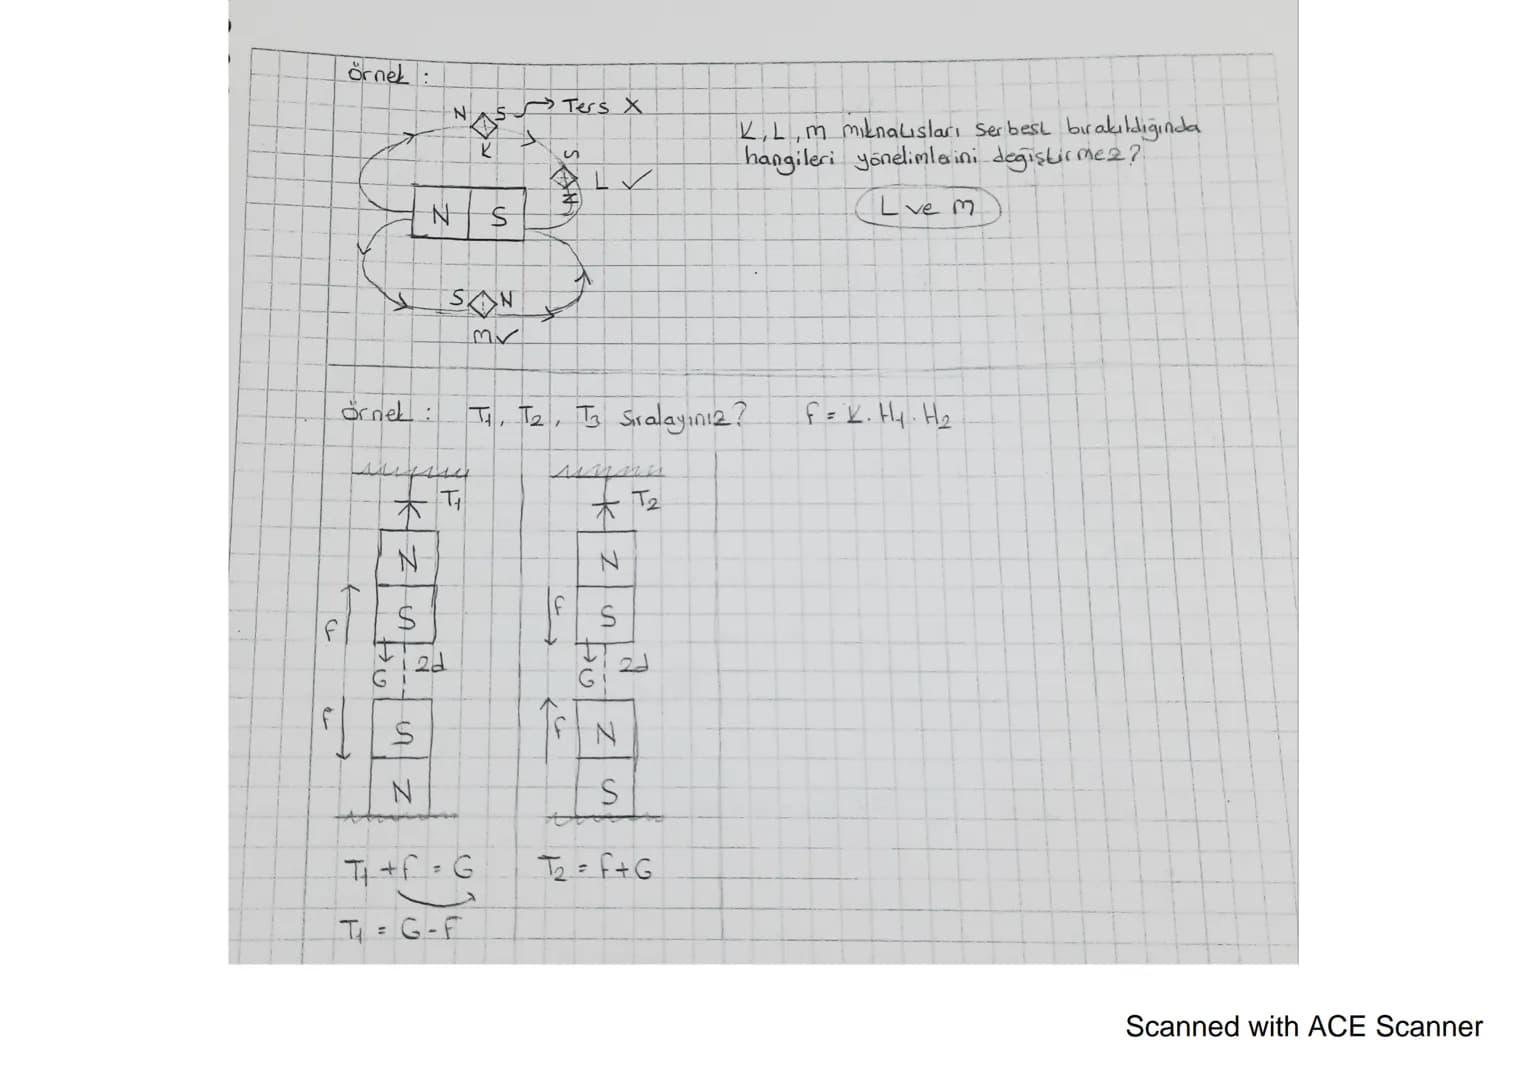 örnek :
N S → Ters X
K
S
L ✓
N
N S
S N
m✓
K, L, m mıknatısları serbest bırakıldığında
hangileri yönelimlerini değiştirmez?
L ve m
örnek : T1, T2, T3 Sıralayınız? f = K. H1. H2
T1
N
S
f
G 2d
f
S
N
T1 + f = G
T1 = G - F
T2
N
f S
G 2d
f N
S
T2 = f + G
Scanned with ACE Scanner